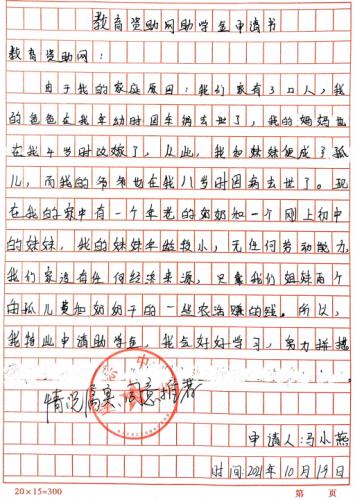 教育资助网助学金申请书
教育资助网：
由于我的家庭原因：我们家有3口人，我
的爸爸在我年幼时因车祸去世了，我的妈妈也
在我4岁时改嫁了，从此，我和妹妹便成了孤
儿，而我的爷爷也在我八岁时因病去世了。现
在我的家中有一个年老的奶奶和一个刚上初中
的妹妹，我的妹妹年龄较小，无任何劳动能力，
我们家没有任何经济来源，只靠我们姐妹两个
的孤儿费和奶奶干的一些农活赚的钱。所以，
我特此申请助学金，我会好好学习，努力拼搏
情况属实，同意推荐
申请人：马小燕
时间：2021年10月19日
20×15=300
第 页